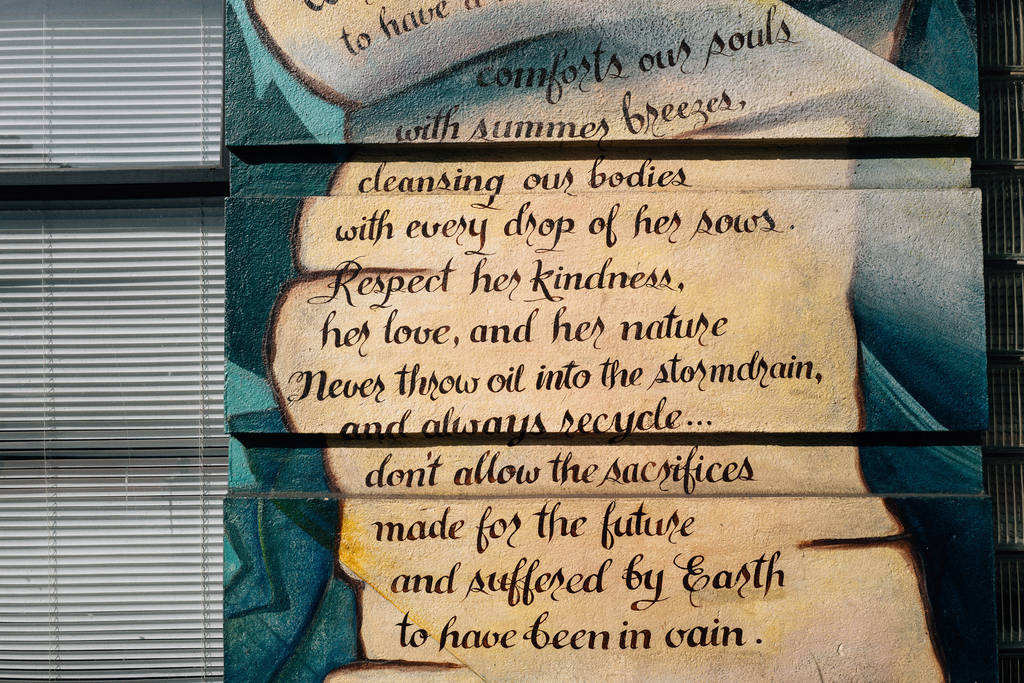 to have a
comforts our souls
with summer breezes,
cleansing our bodies
with every drop of her sows.
Respect her kindness,
her love, and her nature
Never throw oil into the stormdrain,
and always recycle...
don't allow the sacrifices
made for the future
and suffered by Earth
to have been in vain.